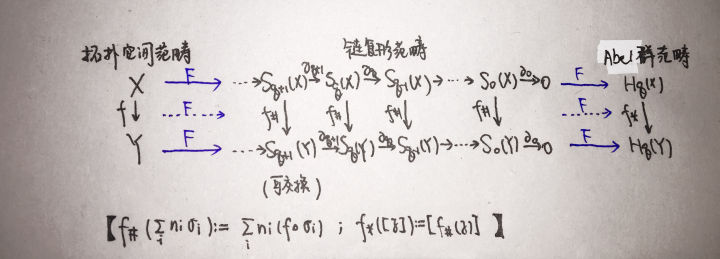 拓扑空间范畴 链复形范畴 Abel群范畴
X F ⋯→Sq+1(X) ∂q+1→ Sq(X) ∂q→ Sq-1(X)→⋯→S0(X) ∂0→0 F Hq(X)
f↓ F f#↓ f#↓ f#↓ f#↓ F f*↓
Y F ⋯→Sq+1(Y) ∂q+1→ Sq(Y) ∂q→ Sq-1(Y)→⋯→S0(Y) ∂0→0 F Hq(Y)
(可交换)
【f#(∑i niσi):= ∑i ni(f∘σi) ; f*([z]):=[f#(z)] 】